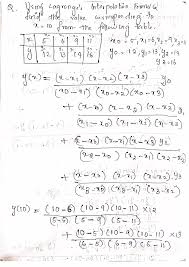 Q. Using Lagrange's Interpolation Formula
find the value corresponding to
x = 10 from the following table.
x 5 6 9 11 x0 = 5, x1 = 6, x2 = 9, x3 = 11
y 12 13 14 16 y0 = 12, y1 = 13, y2 = 14
y3 = 16
y(x) = (x-x1) (x-x2) (x-x3) y0
(x0-x1) (x0-x2) (x0-x3)
+ (x-x0) (x-x2) (x-x3) y1
(x1-x0) (x1-x2) (x1-x3)
+ (x-x0) (x-x1) (x-x3) y2
(x2-x0) (x2-x1) (x2-x3)
+ (x-x0) (x-x1) (x-x2) y3
(x3-x0) (x3-x1) (x3-x2)
y(10) = (10-6) (10-9) (10-11) ×12
(5-6) (5-9) (5-11)
+ (10-5) (10-9) (10-11) ×13
(6-5) (6-9) (6-11)